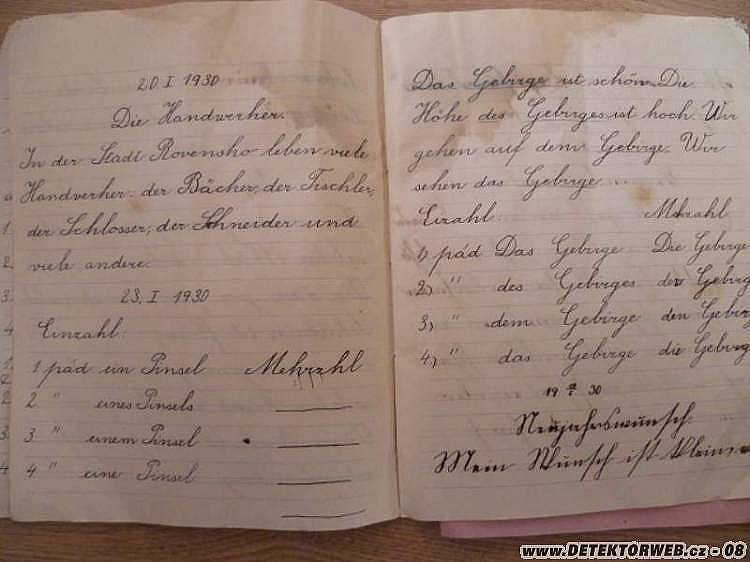 20 I 1930
Die Handwerker.
In der Stadt Rovensko leben viele
Handwerker: der Bäcker, der Tischler,
der Schlosser, der Schneider und
viele andere.
23. I 1930
Einzahl:
1 pád ein Pinsel Mehrzahl
2 " eines Pinsels
3 " einem Pinsel
4 " eine Pinsel
Das Gebirge ist schön. Die
Höhe des Gebirges ist hoch. Wir
gehen auf dem Gebirge. Wir
sehen das Gebirge.
Eizahl: Mehrzahl
1) pád Das Gebirge Die Gebirge
2) " des Gebirges der Gebirg
3) " dem Gebirge den Gebir
4) " das Gebirge die Gebirg
19 30
Neujahrswunsch
Mein Wunsch ist klein,
www.DETEKTORWEB.cz - 08